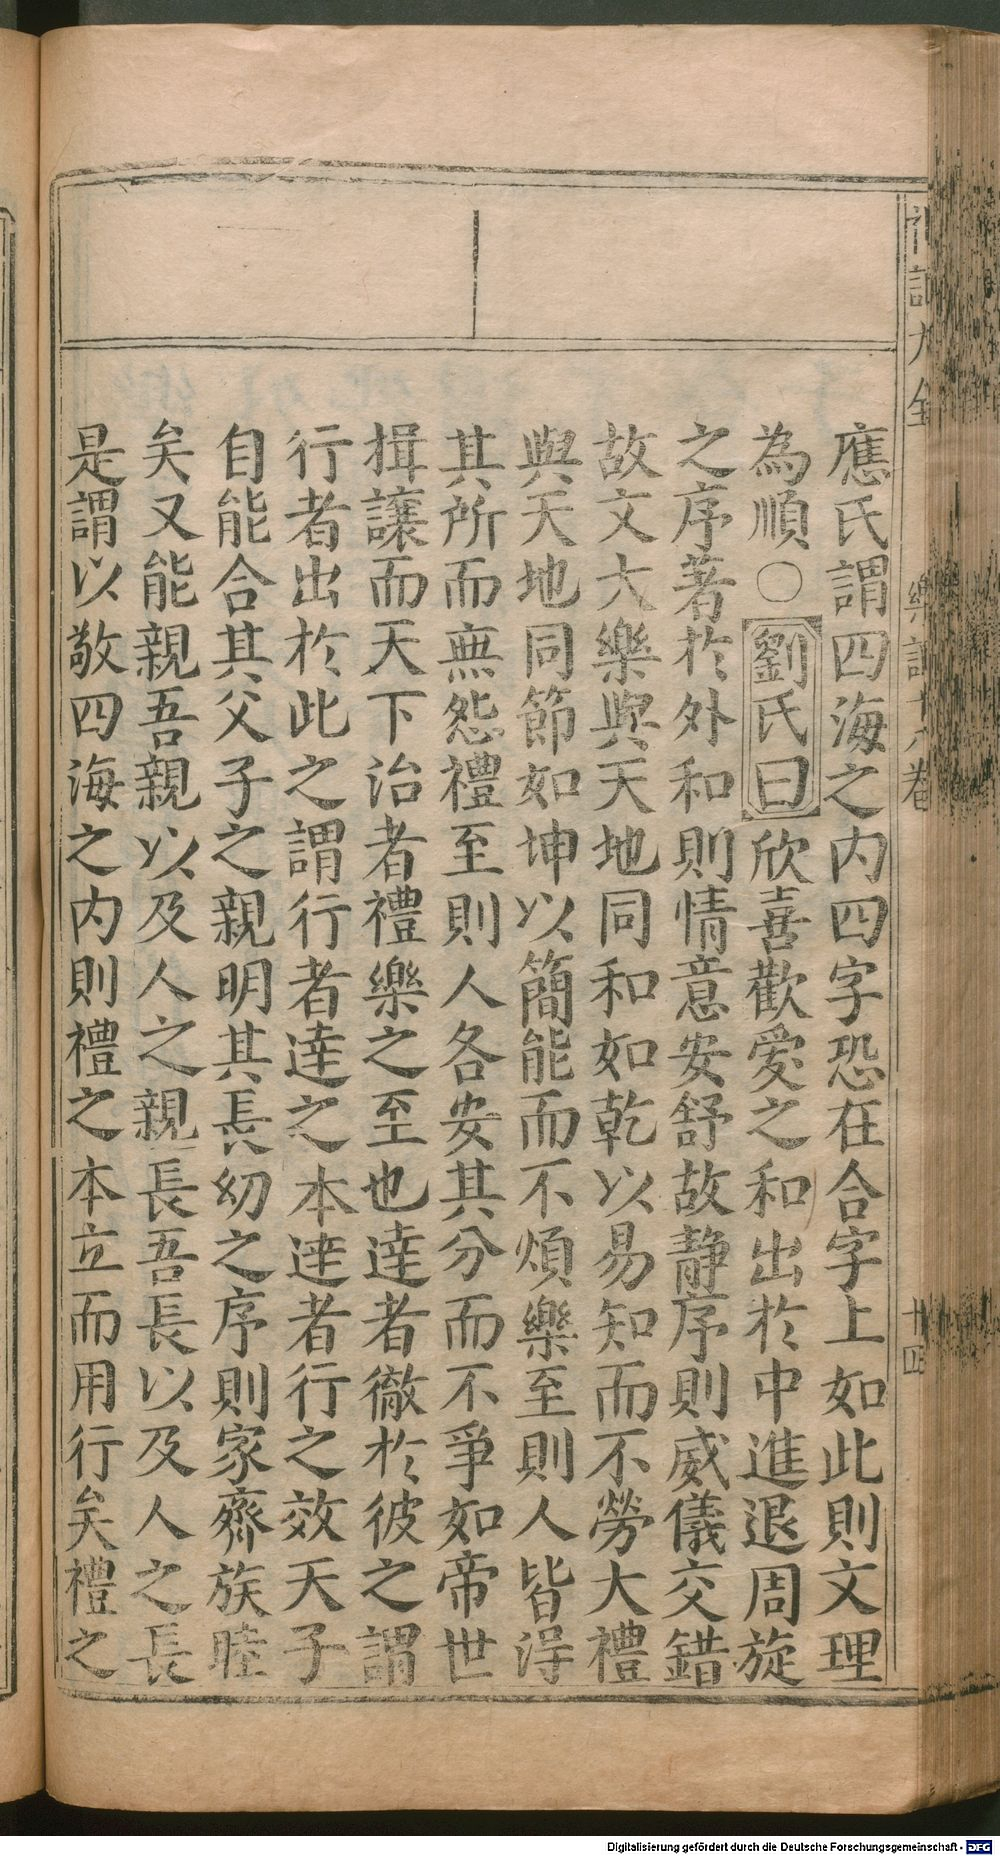 應氏謂四海之内四字恐在合字上如此則文理
為順○劉氏曰欣喜歡愛之和出於中進退周旋
之序著於外和則情意安舒故静序則威儀交錯
故文大樂與天地同和如乾以易知而不勞大禮
與天地同節如坤以簡能而不煩樂至則人皆得
其所而無怨禮至則人各安其分而不爭如帝世
揖讓而天下治者禮樂之至也達者徹於彼之謂
行者出於此之謂行者達之本達者行之效天子
自能合其父子之親明其長幼之序則家齊族睦
矣又能親吾親以及人之親長吾長以及人之長
是謂以敬四海之内則禮之本立而用行矣禮之
Digitalisierung gefördert durch die Deutsche Forschungsgemeinschaft - DFG